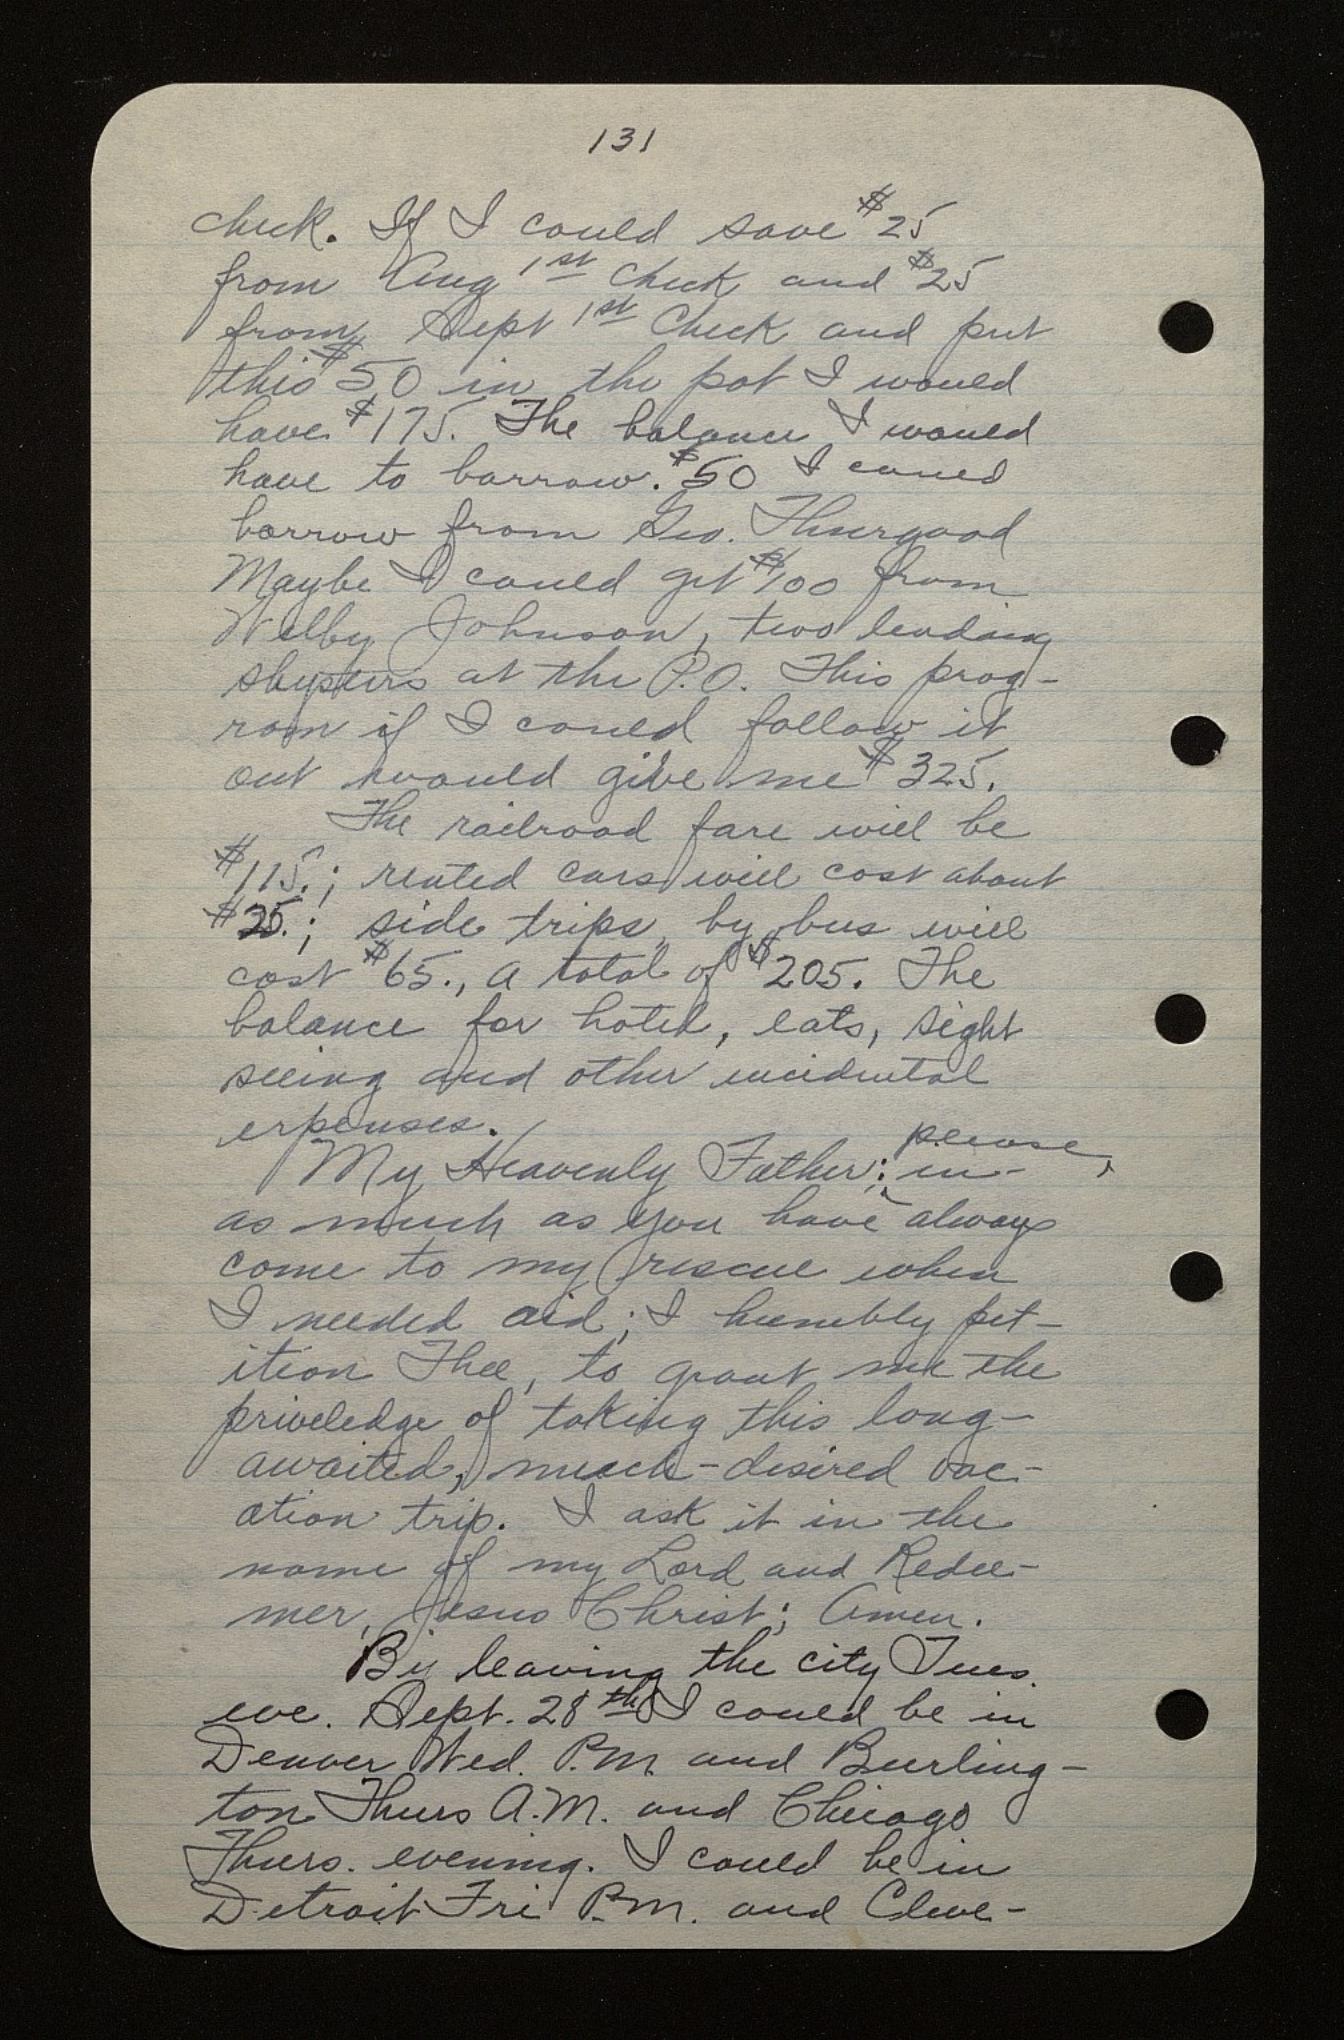 131
check. If I could save $25
from Aug 1st check and $25
from Sept 1st check and put
this $50 in the pot I would
have $175. The balance I would
have to borrow. $50 I could
borrow from Geo. Thurgood
Maybe I could get $100 from
Welby Johnson, two lending
shysters at the P.O. This prog-
ram if I could follow it
out would give me $325.
The railroad fare will be
$115.; rented cars will cost about
$25.; side trips by bus will
cost $65., a total of $205. The
balance for hotel, eats, sight
seeing and other incidental
expenses.
please,
My Heavenly Father; in-
as much as you have always
come to my rescue when
I needed aid; I humbly pet-
ition Thee, to grant me the
priveledge of taking this long-
awaited, much-desired vac-
ation trip. I ask it in the
name of my Lord and Redee-
mer, Jesus Christ; Amen.
By leaving the city Tues.
eve. Sept. 28th I could be in
Denver Wed. P.M. and Burling-
ton Thurs A.M. and Chicago
Thurs. evening. I could be in
Detroit Fri P.M. and Cleve-